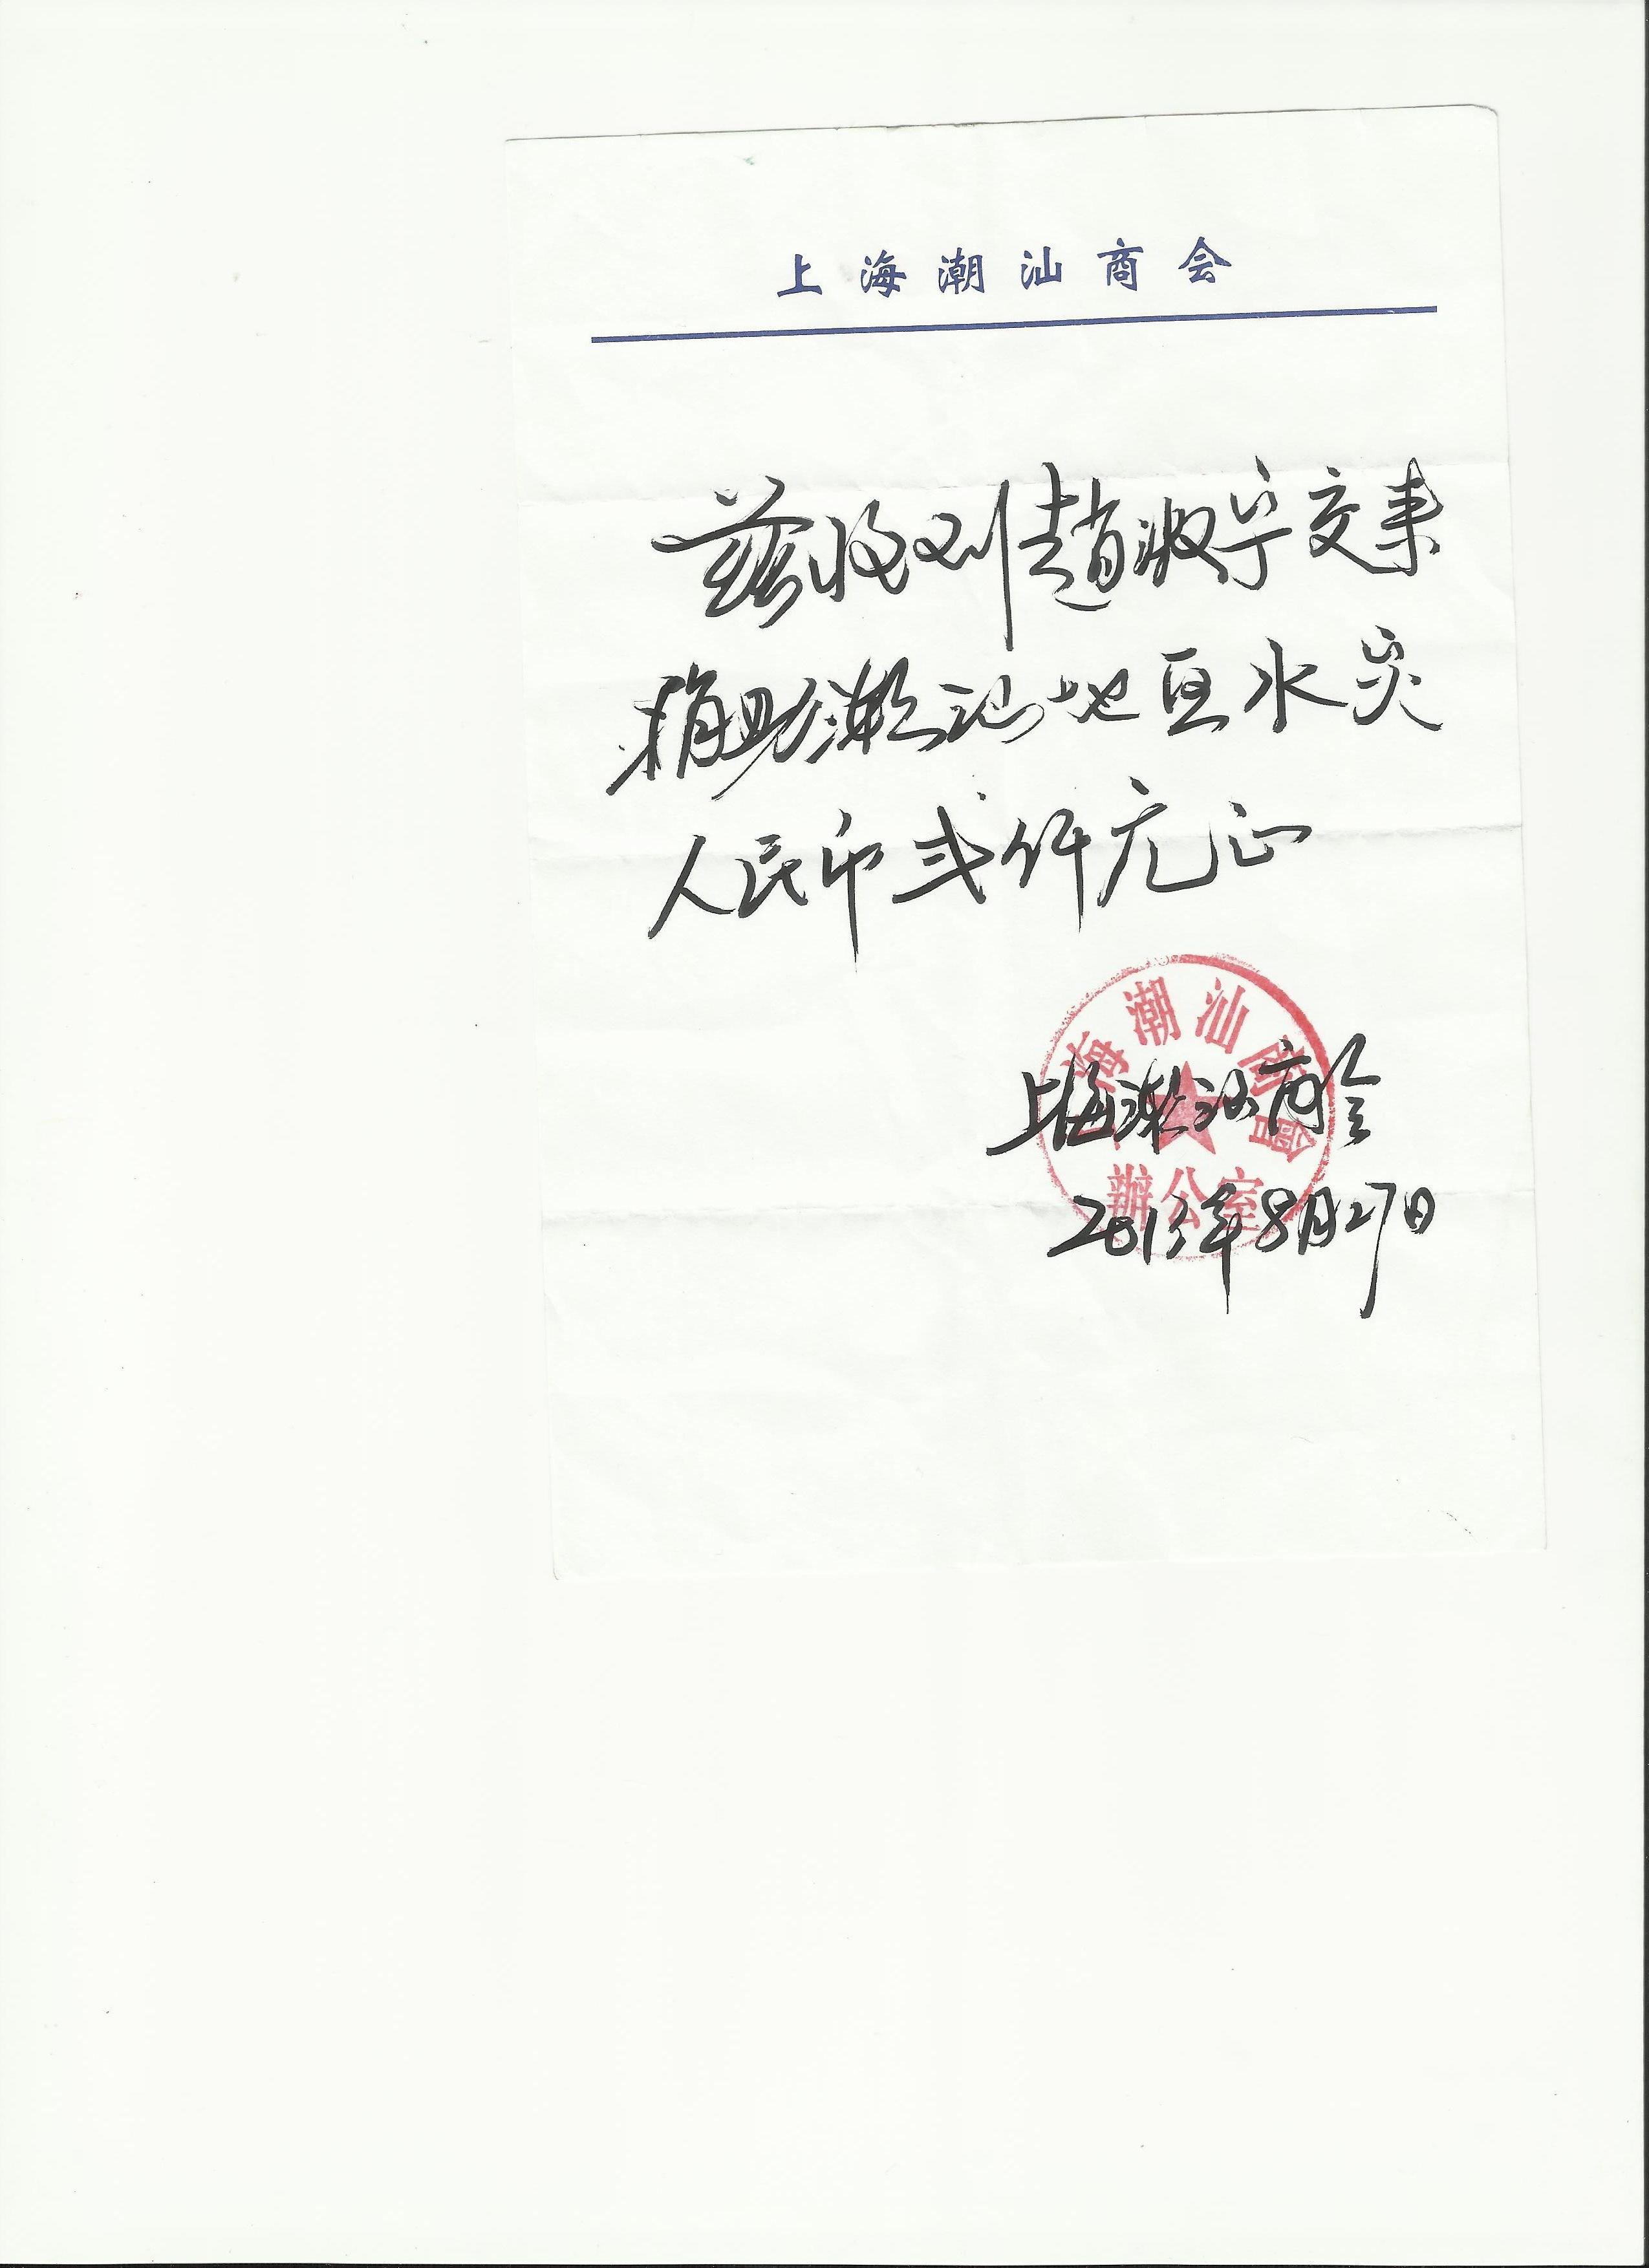 上海潮汕商会
兹收到趙淑宁交来
捐助潮汕地区水灾
人民币弍仟元正
海潮汕商會
上海潮汕商会
辦公室
2013年8月27日